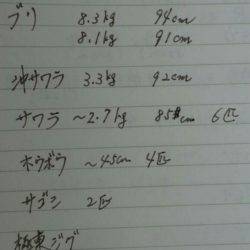 ブリ 8.3kg 94cm
8.1kg 91cm
沖サワラ 3.3kg 92cm
サワラ ~2.7kg 85cm 6匹
ホウボウ ~45cm 4匹
サゴシ 2匹
板東ジグ